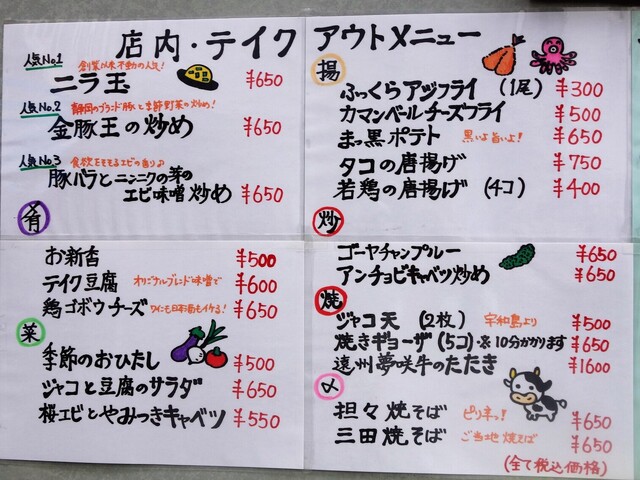 店内・テイクアウトメニュー
人気No.1 創業以来不動の人気!
ニラ玉 ¥650
人気No.2 静岡のブランド豚と季節野菜の炒め!
金豚王の炒め ¥650
人気No.3 食欲をそそるエビの香り♪
豚バラとニンニクの芽の
エビ味噌炒め ¥650
肴
お新香 ¥500
テイク豆腐 オリジナルブレンド味噌で ¥600
鶏ゴボウチーズ ワインも日本酒もイケる! ¥650
菜
季節のおひたし ¥500
ジャコと豆腐のサラダ ¥650
桜エビとやみつきキャベツ ¥550
揚
ふっくらアジフライ (1尾) ¥300
カマンベールチーズフライ ¥500
まっ黒ポテト 黒いよ旨いよ! ¥650
タコの唐揚げ ¥750
若鶏の唐揚げ (4コ) ¥400
炒
ゴーヤチャンプルー ¥650
アンチョビキャベツ炒め ¥650
焼
ジャコ天 (2枚) 宇和島より ¥500
焼きギョーザ (5コ)・※10分かかります ¥650
遠州夢咲牛のたたき ¥1600
〆
担々焼そば ピリネっ! ¥650
三田焼そば ご当地焼そば ¥650
(全て税込価格)